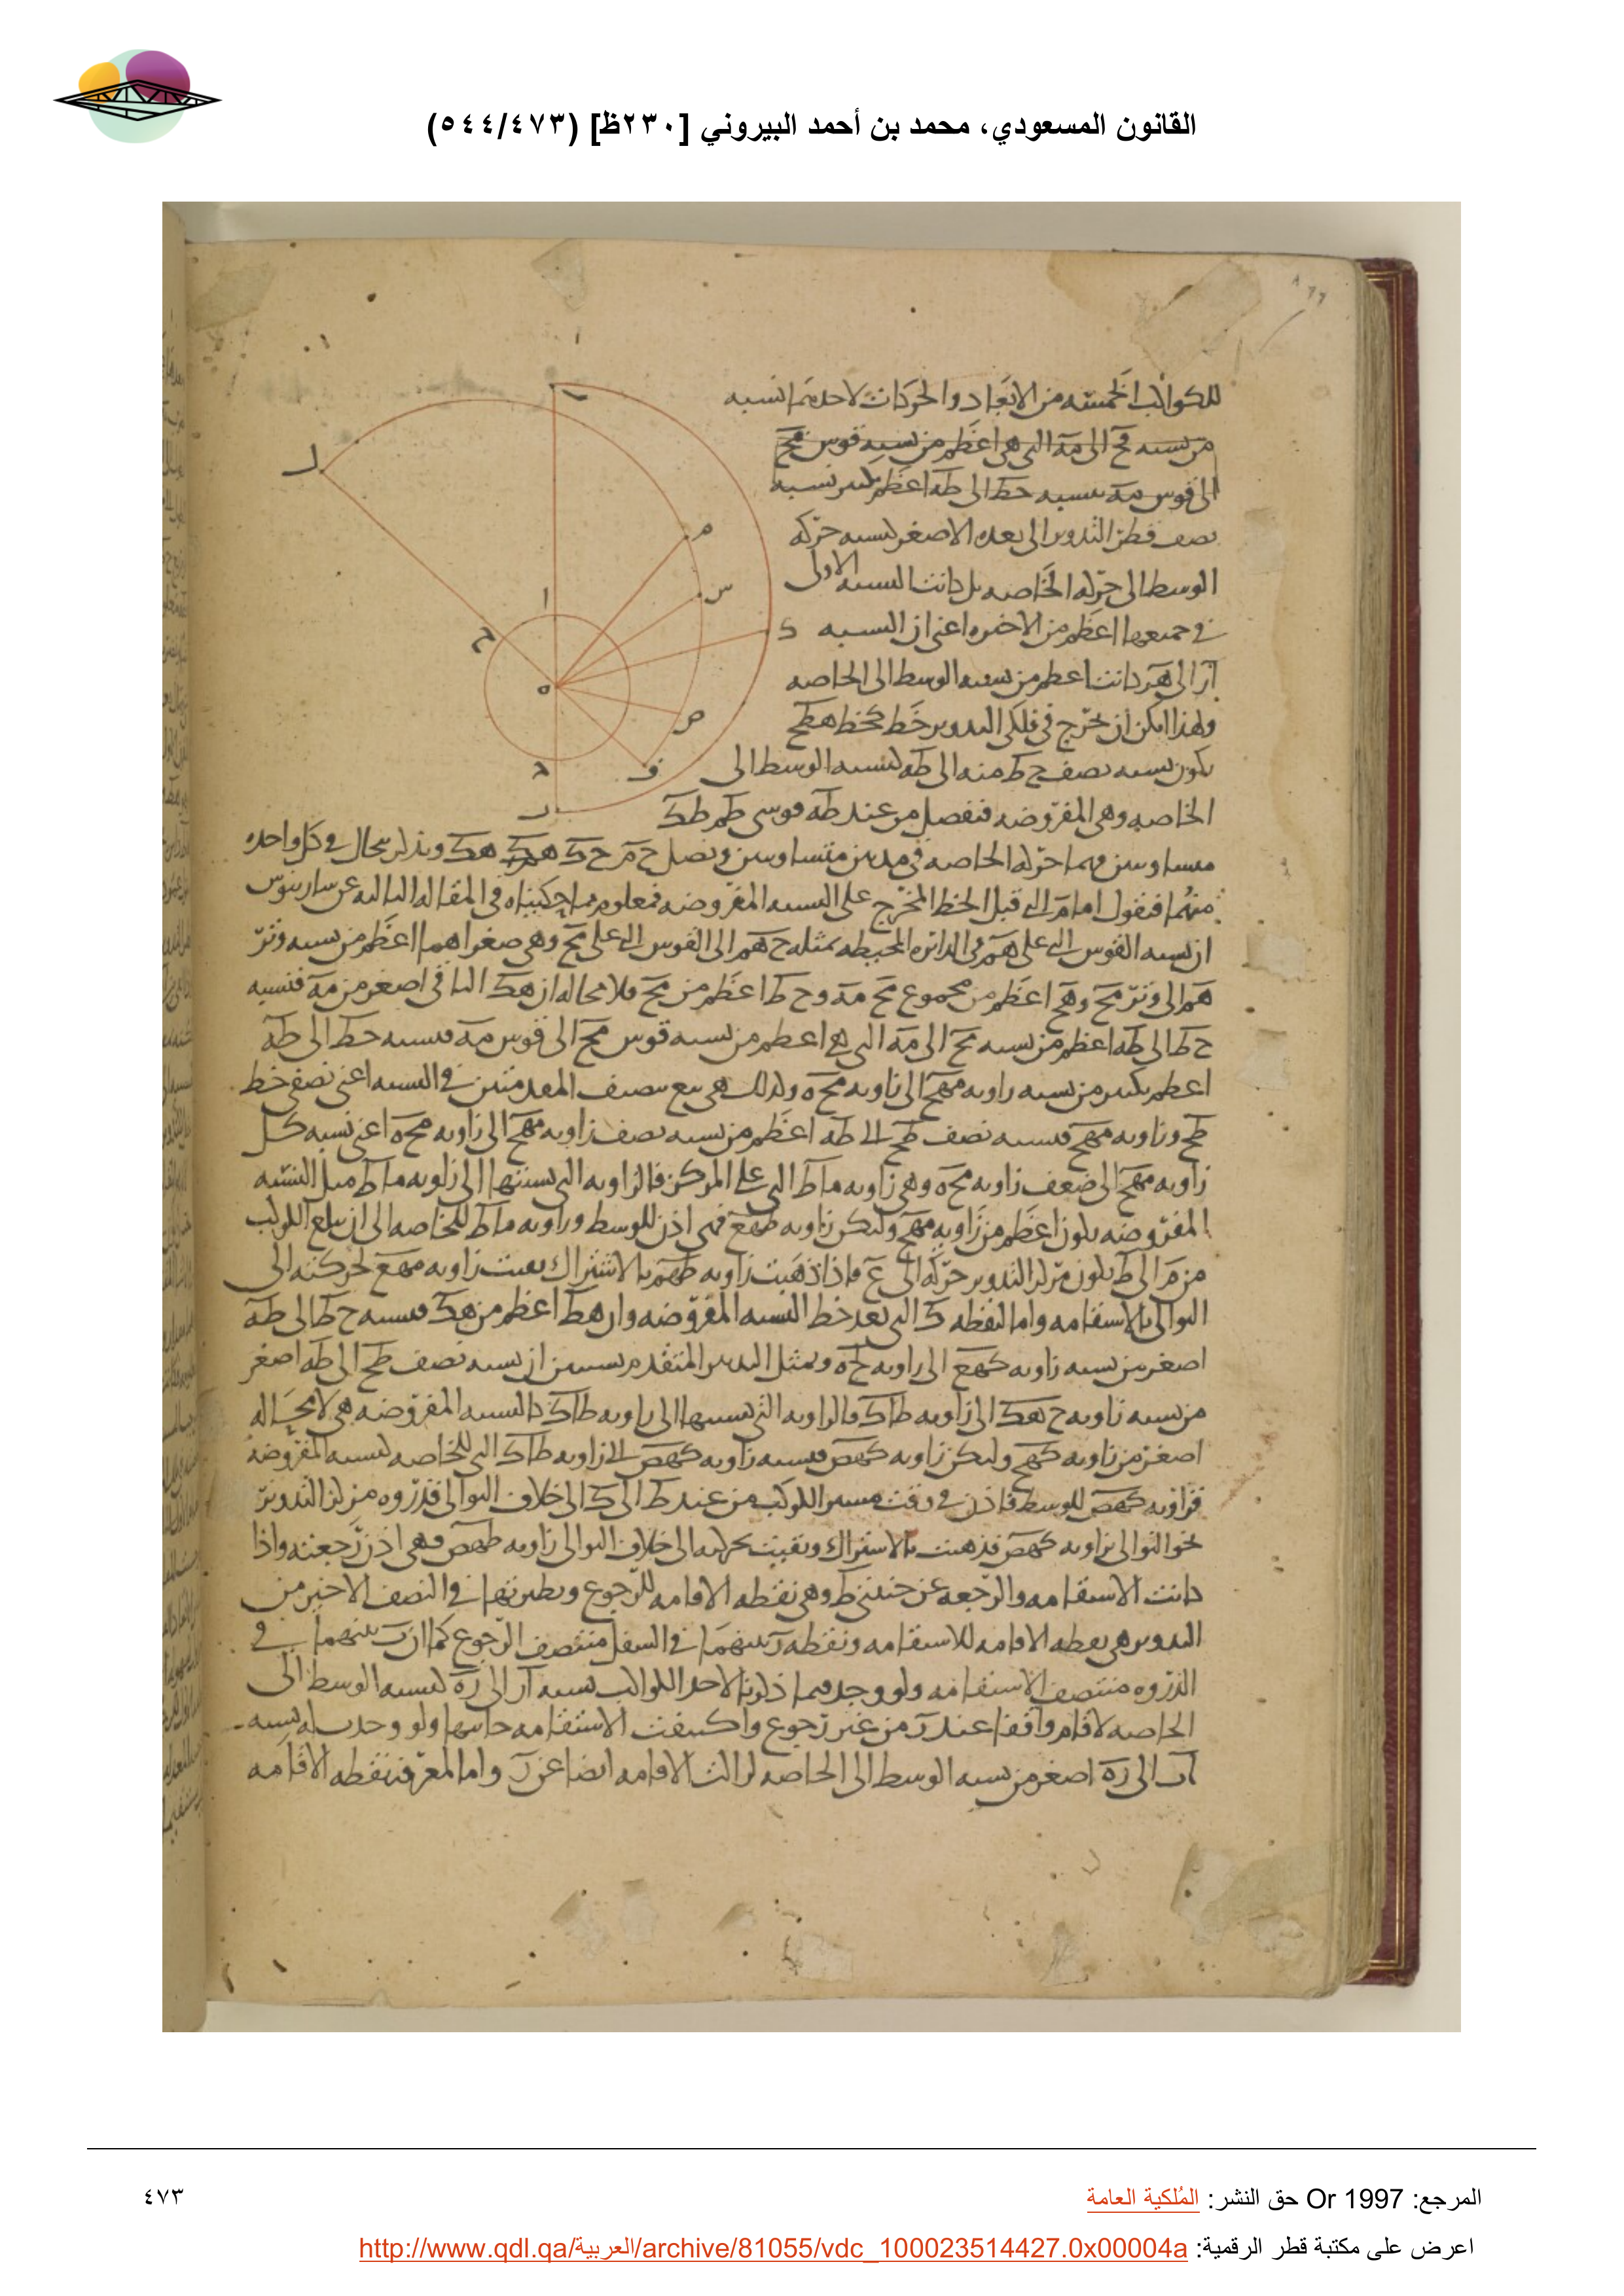 القانون المسعودي، محمد بن أحمد البيروني [٢٣٠ظ] (٥٤٤/٤٧٣)
للكواكب الخمسه من الابعاد والحركات لاحدهما نسبه
من نسبه مح الى مه التى هى اعظم من نسبه قوس مح
الى قوس مه نسبه حط الى طه اعظم نسبه
نصف قطر التدوير الى بعده الاصغر لنسبه حركه
الوسط الى حركه الخاصه بل كانت النسبه الاولى
فى جميعها اعظم من الاخيره اعنى ان النسبه
ار الى هر كانت اعظم من نسبه الوسط الى الخاصه
ولهذا امكن ان يخرج فى فلكى التدوير خط كخط هطح
يكون نسبه نصف ح ط منه الى طه لنسبه الوسط الى
الخاصه وهى المفروضه فنفصل من عند طه قوسى طم طك
متساويتين حركه الخاصه فى متساويتين ونصل ح م ح ك هك فى كل واحده
منهما فنقول اما م التى قبل الخط المخرج على النسبه المفروضه فمعلوم مما حكيناه فى المقاله الثالثه عن
ان نسبه القوس التى على هم فى الدائره المحيطه بمثلث ح هم الى القوس التى على مح وهى صغراهما اعظم من نسبه وتر
هم الى وتر مح وهح اعظم من مجموع مح مه وح ط اعظم من مح فلا محاله ان هط الباقى اصغر من مه فنسبه
ح ط الى طه اعظم من نسبه مح الى مه التى هى اعظم من نسبه قوس مح الى قوس مه فنسبه حط الى طه
اعظم بكثير من نسبه زاويه مهح الى زاويه مح ه ولذلك هى مع نصف المقدمتين فى النسبه اعنى نصفى خط
طح وزاويه مهح فنسبه نصف طح الى طه اعظم من نسبه نصف زاويه مهح الى زاويه مح ه اعنى نسبه كل
زاويه مهح الى ضعف زاويه مح ه وهى زاويه ما ط التى على المركز فالزاويه التى نسبتها الى زاويه ما ط مثل النسبه
المفروضه يكون اعظم من زاويه مهح ولتكن زاويه طهع فهى اذن للوسط وزاويه ما ط للخاصه الى ان يبلغ الكوكب
من م الى ط يكون مركز التدوير حركه الى ع فاذا ذهبت زاويه طهم بالاشتراك بقيت زاويه مهع لحركته الى
التوالى بالاستقامه واما النقطه ك التى بعد خط النسبه المفروضه وان هط اعظم من هك فنسبه ح ط الى طه
اصغر من نسبه زاويه كهع الى زاويه ك ح ه وبمثل التدبير المتقدم يتبين ان نسبه نصف طح الى طه اصغر
من نسبه زاويه ح هك الى زاويه ط ا ك فالزاويه التى نسبتها الى زاويه ط ا ك كالنسبه المفروضه هى لا محاله
اصغر من زاويه كهح ولتكن زاويه كهص فنسبه زاويه كهص الى زاويه ط ا ك التى للخاصه لنسبه المفروضه
فزاويه كهص للوسط فاذن فى وقت مسير الكوكب من عند ط الى ك الى خلاف التوالى مركز التدوير
نحو التوالى بزاويه كهص فذهبت بالاشتراك وبقيت حركته الى خلاف التوالى زاويه طهص فهى اذن رجعته واذا
كانت الاستقامه والرجعه عن جنبتى ط وهى نقطه الاقامه للرجوع ونظيرتها فى النصف الاخير من
التدوير هى نقطه الاقامه للاستقامه ونقطه ر بينهما فى السفل منتصف الرجوع كما ان ب بينهما فى
الذروه منتصف الاستقامه ولو وجد فيما ذكرنا لاحد الكواكب نسبه ار الى ره لنسبه الوسط الى
الخاصه لاقام واقفا عند ر من غير رجوع الاستقامه ولو وجدت له نسبه
ار الى ره اصغر من نسبه الوسط الى الخاصه الاقامه ايضا عن ر واما لمعرفه نقطه الاقامه
ب
ل
م
س
ا
ح
ك
ه
ص
ف
د
ر
المرجع: Or 1997 حق النشر: المُلكية العامة
٤٧٣
اعرض على مكتبة قطر الرقمية: http://www.qdl.qa/العربية/archive/81055/vdc_100023514427.0x00004a